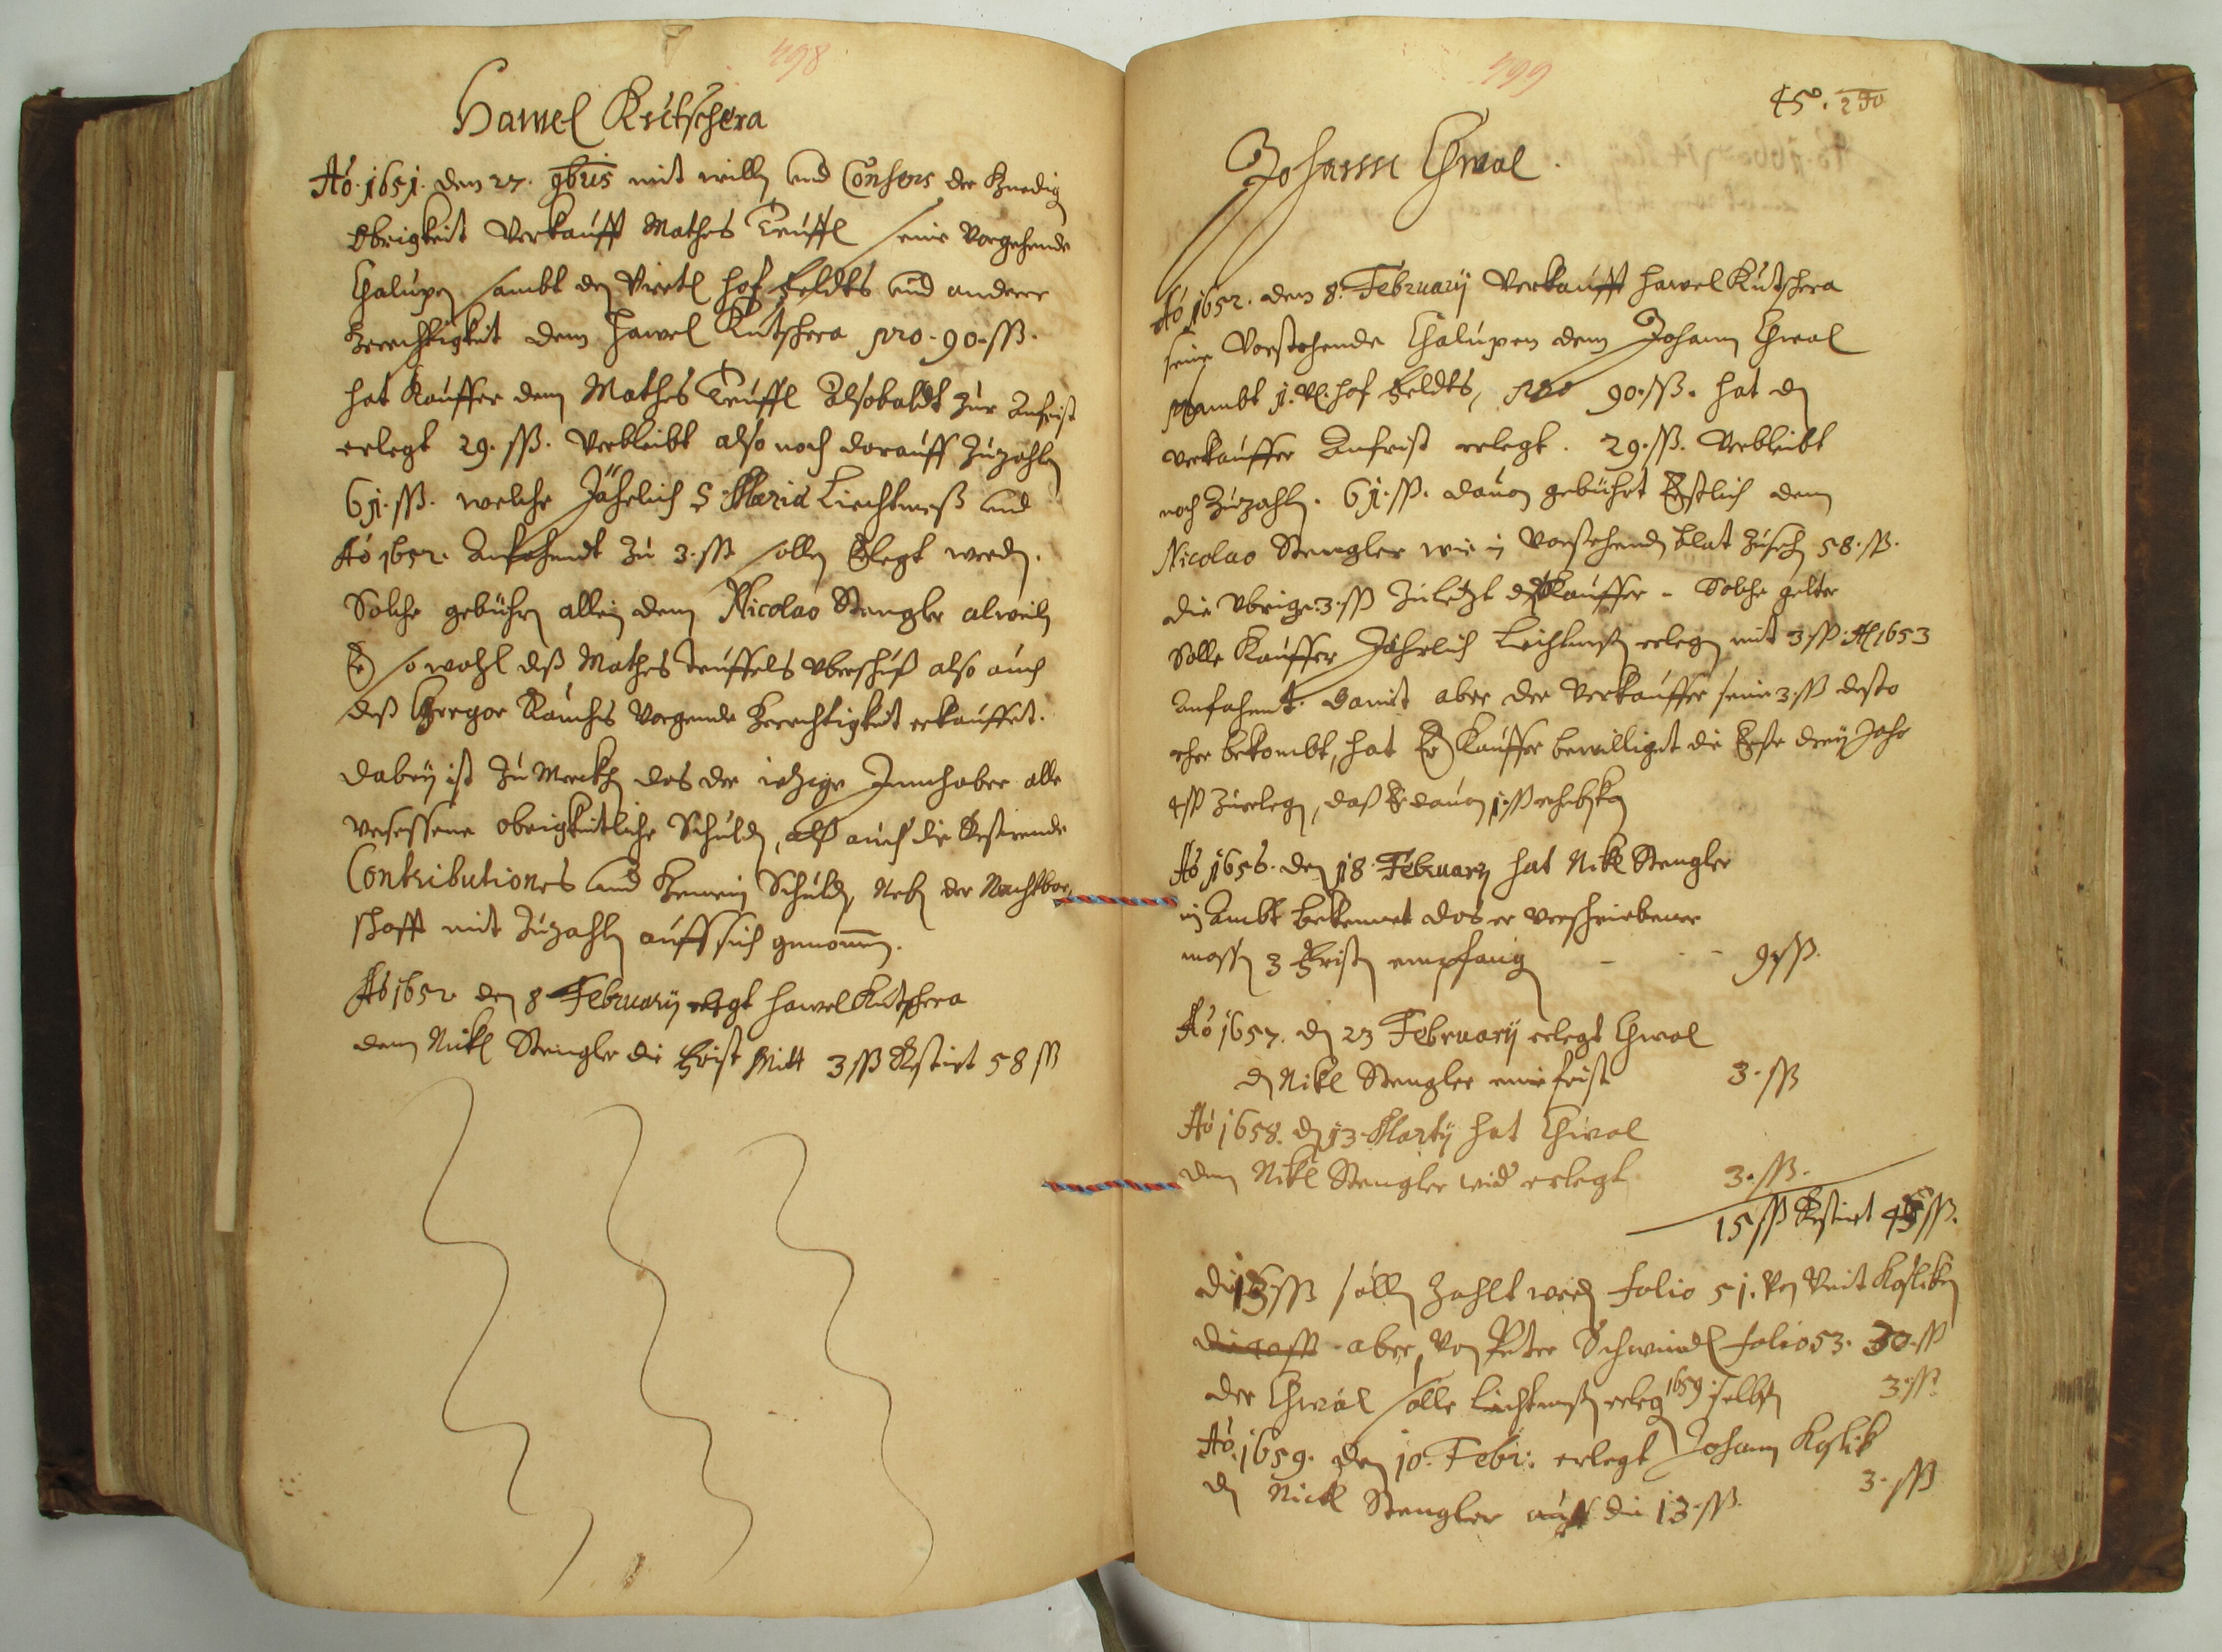 498
Hawel Kutschera
Aõ. 1651. den 27. 9bris mit willen und Consens der Gnedigen
Obrigkeit Verkaufft Mathes Teuffl seine Vorgehende
Chalupen sambt den Viertl hof Feldts und anderer
Gerechtigkeit dem Hawel Kutschera pro. 90. ßß.
hat Kauffer dem Mathes Teuffl Alsobaldt zur Anfrist
erlegt 29. ßß. Verbleibt also noch darauff Zuzahlen
61. ßß. welche Jährlich Maria Liechtmeß und
Aõ 1652. Anfahendt zu 3. ßß sollen Erlegt werden.
Solche gebühren allein dem Nicolao Stengler alweiln
Er sowohl deß Mathes Teuffels Uberschuß also auch
deß Gregor Rauchs Vorgende Gerechtigkeit erkauffet.
dabey ist zu Merckhen das der ietzige Innhaber alle
Versessene obrigkeitliche Schulden, alß auch die Restirende
Contributiones und Gemein Schulden, Neben der Nachtbar
schafft mit Zuzahlen auff sich genommen.
Aõ 1652. den 8 February erlegt Hawel Kutschera
dem Nickl Stengler die Frist Mitt 3 ßß Restirt 58 ßß
499
45. 250
Johann Chwal.
Aõ 1652. den 8. February Verkaufft Hawel Kutschera
seine Vorstehende Chalupen dem Johann Chwal
sambt 1. Vl. hof Feldts, pro 90. ßß. hat den
Verkauffer Anfrist erlegt. 29. ßß. Verbleibt
noch Zuzahlen. 61. ßß. davon gebührt Erstlich dem
Nicolao Stengler wie in Vorstehenden blat zusehen 58. ßß.
die Ubrige. 3. ßß zu Letzt den Verkauffer - Solche gelter
Solle Kauffer Jährlich Liechtmeßen erlegen mit 3 ßß. Aõ 1653
Anfahent. Damit aber der Verkauffer seine 3. ßß desto
eher bekombt, hat Er Kauffer bewilliget die Erste drey Jahr
4 ßß Zuerlegen, daß Er davon 1. ßß
Aõ 1656. den 18. February hat Nikl Stengler
in Ambt bekennet das er Verschriebener
massen 3 Fristen empfangen - - - 9 ßß.
Aõ 1657. den 23 February erlegt Chwal
den Nikl Stengler eine frist 3. ßß
Aõ 1658. den 13. Marty hat Chwal
dem Nikl Stengler wider erlegt 3. ßß.
15 ßß Restirt 43 ßß.
die 13 ßß sollen Zahlt werden folio 51. Von Veit Koslikhen
die 30 ßß aber, Von Peter Schwindl folio 53. 30. ßß
der Chwal solle Liechtmeßen erlegen 1659 selbsten 3. ßß.
Aõ. 1659. den 10. Febr: erlegt Johann Koslik
den Nickl Stengler auff die 13. ßß. 3. ßß